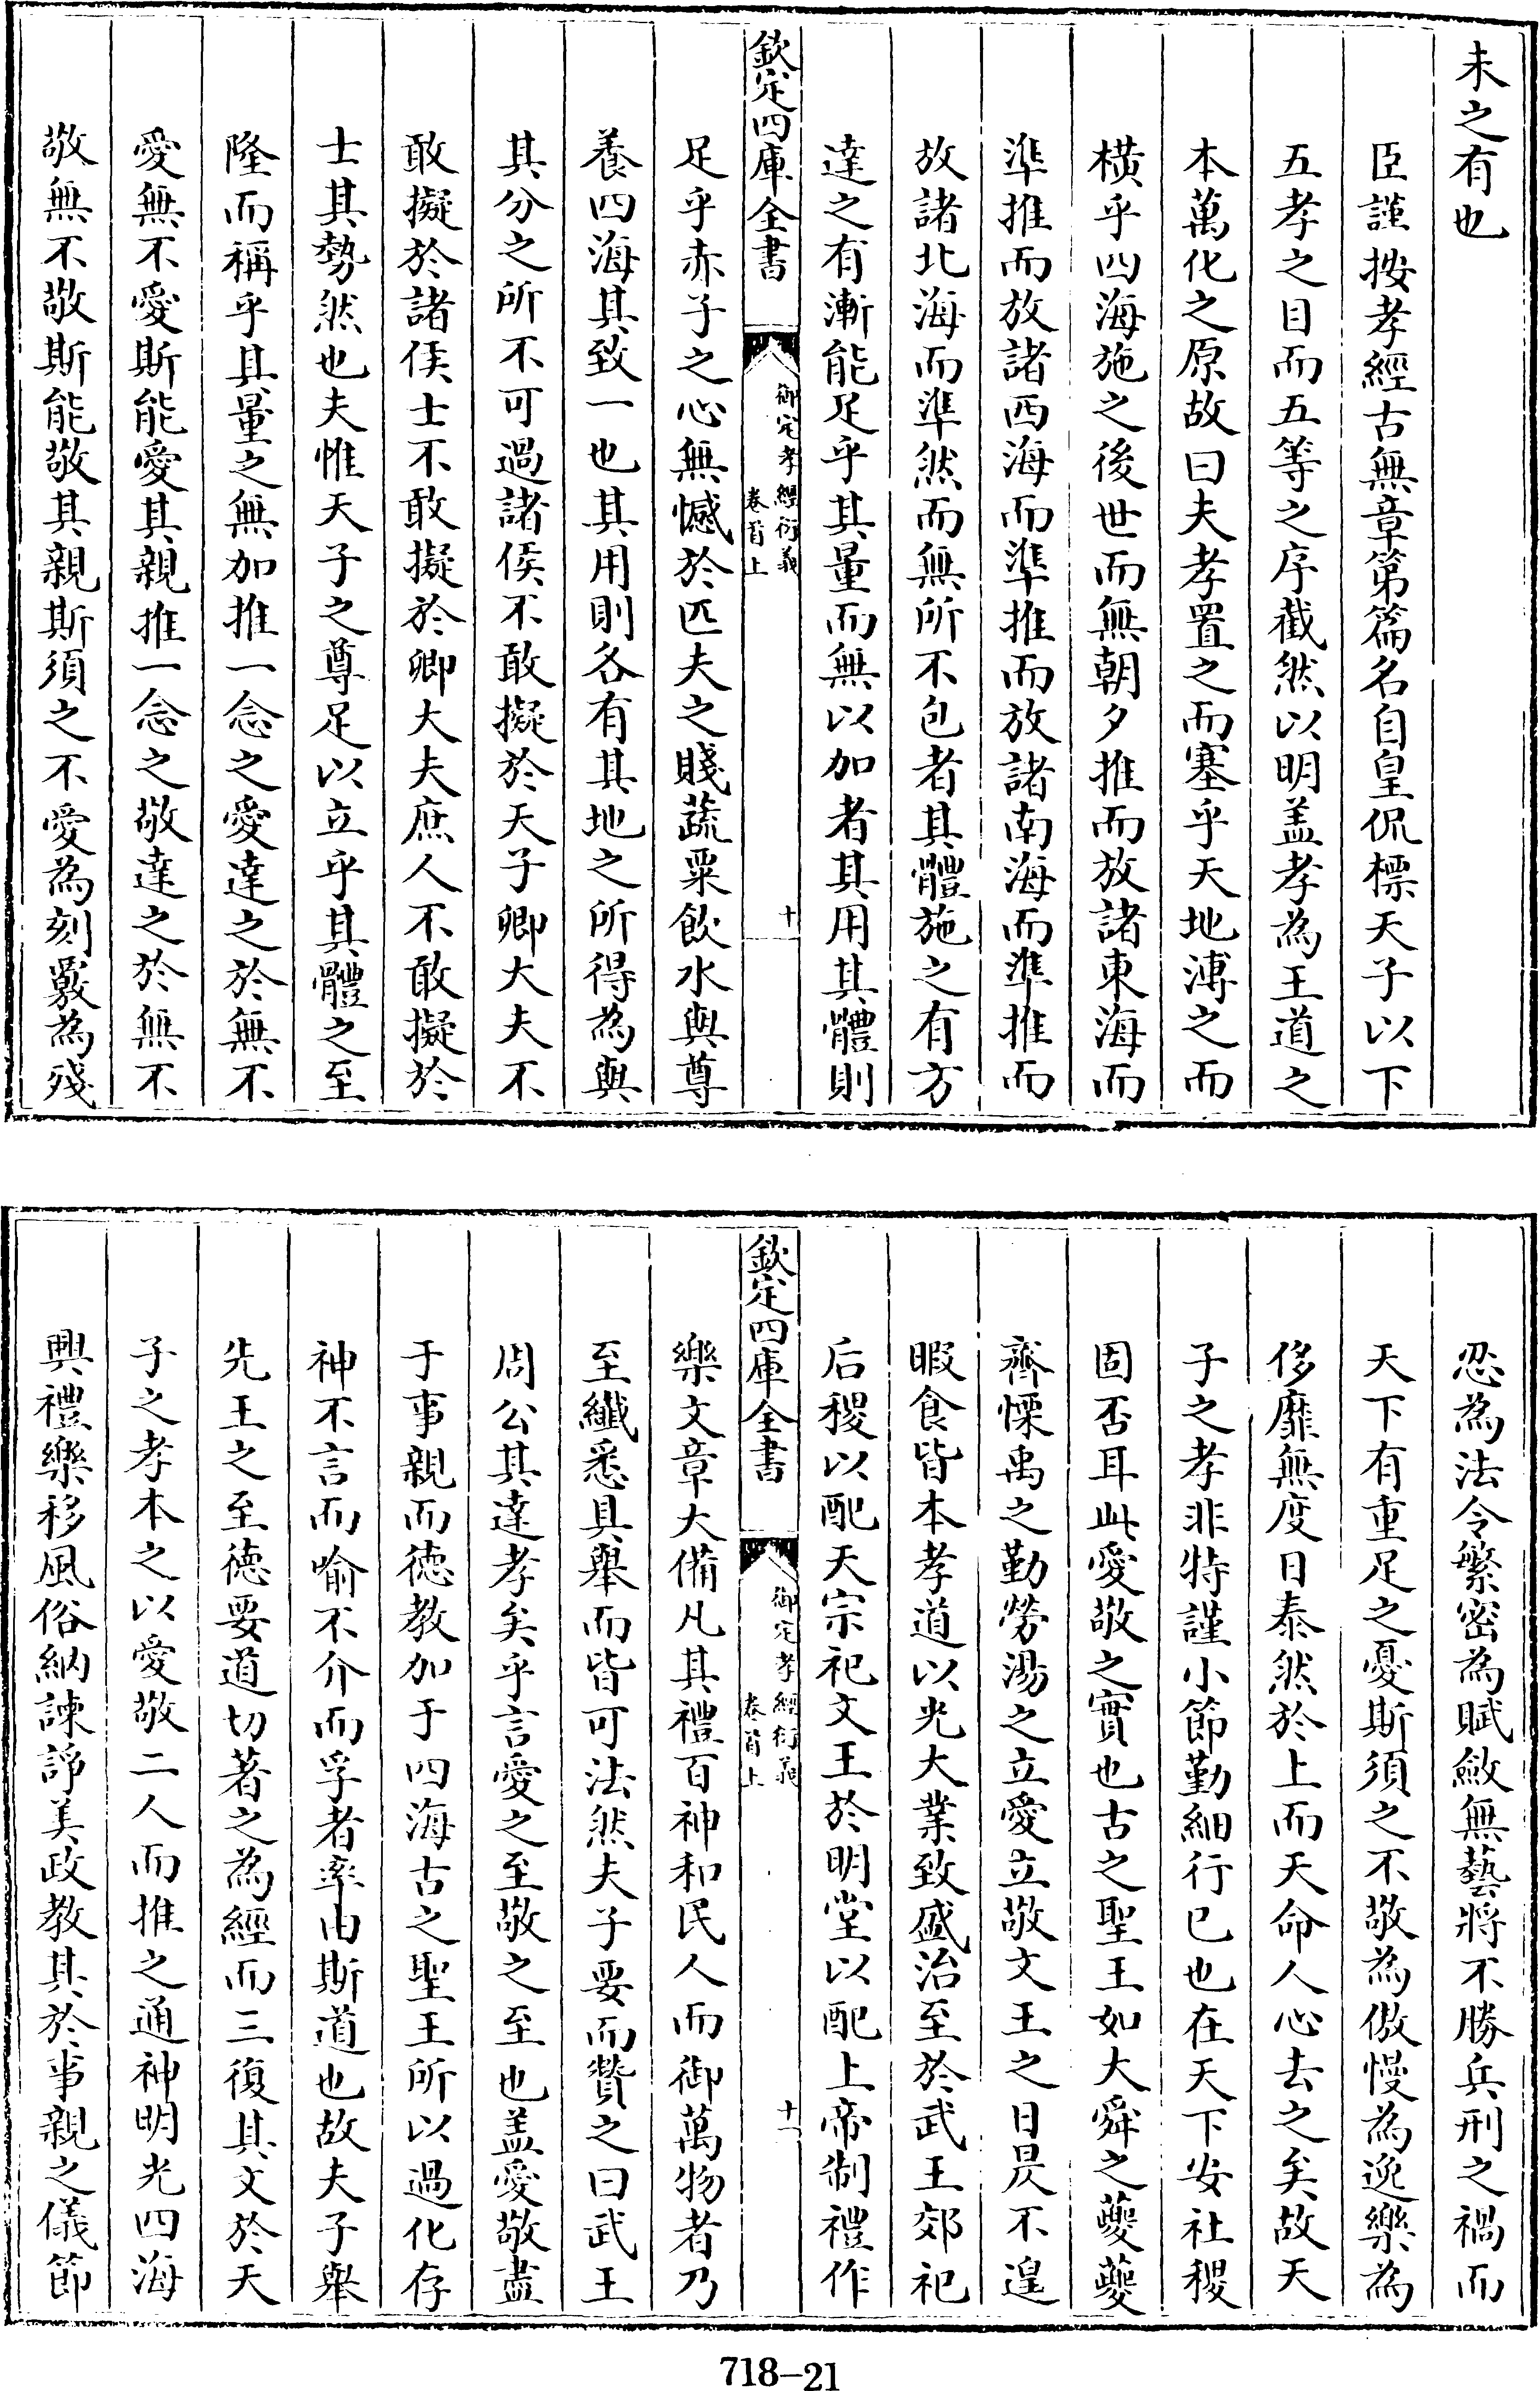 未之有也
臣謹按孝經古無章第篇名自皇侃標天子以下
五孝之目而五等之序截然以明盖孝為王道之
本萬化之原故曰夫孝置之而塞乎天地溥之而
横乎四海施之後世而無朝夕推而放諸東海而
準推而放諸西海而準推而放諸南海而準推而
放諸北海而準然而無所不包者其體施之有方
達之有漸能足乎其量而無以加者其用其體則
欽定四庫全書
御定孝經衍義
卷首上
十
足乎赤子之心無憾於匹夫之賤蔬粟飲水與尊
養四海其致一也其用則各有其地之所得為與
其分之所不可過諸侯不敢擬於天子卿大夫不
敢擬於諸侯士不敢擬於卿大夫庶人不敢擬於
士其勢然也夫惟天子之尊足以立乎其體之至
隆而稱乎其量之無加推一念之愛達之於無不
愛無不愛斯能愛其親推一念之敬達之於無不
敬無不敬斯能敬其親斯須之不愛為刻覈為殘
忍為法令繁密為賦斂無藝將不勝兵刑之禍而
天下有重足之憂斯須之不敬為傲慢為逸樂為
侈靡無度日泰然於上而天命人心去之矣故天
子之孝非特謹小節勤細行已也在天下安社稷
固否耳此愛敬之實也古之聖王如大舜之夔夔
齊慄禹之勤勞湯之立愛立敬文王之日昃不遑
暇食皆本孝道以光大業致盛治至於武王郊祀
后稷以配天宗祀文王於明堂以配上帝制禮作
欽定四庫全書
御定孝經衍義
卷首上
十一
樂文章大備凡其禮百神和民人而御萬物者乃
至纖悉具舉而皆可法然夫子要而贊之曰武王
周公其達孝矣乎言愛之至敬之至也盖愛敬盡
于事親而徳教加于四海古之聖王所以過化存
神不言而喻不介而孚者率由斯道也故夫子舉
先王之至徳要道切著之為經而三復其文於天
子之孝本之以愛敬二人而推之通神明光四海
興禮樂移風俗納諫諍美政教其於事親之儀節
718-21